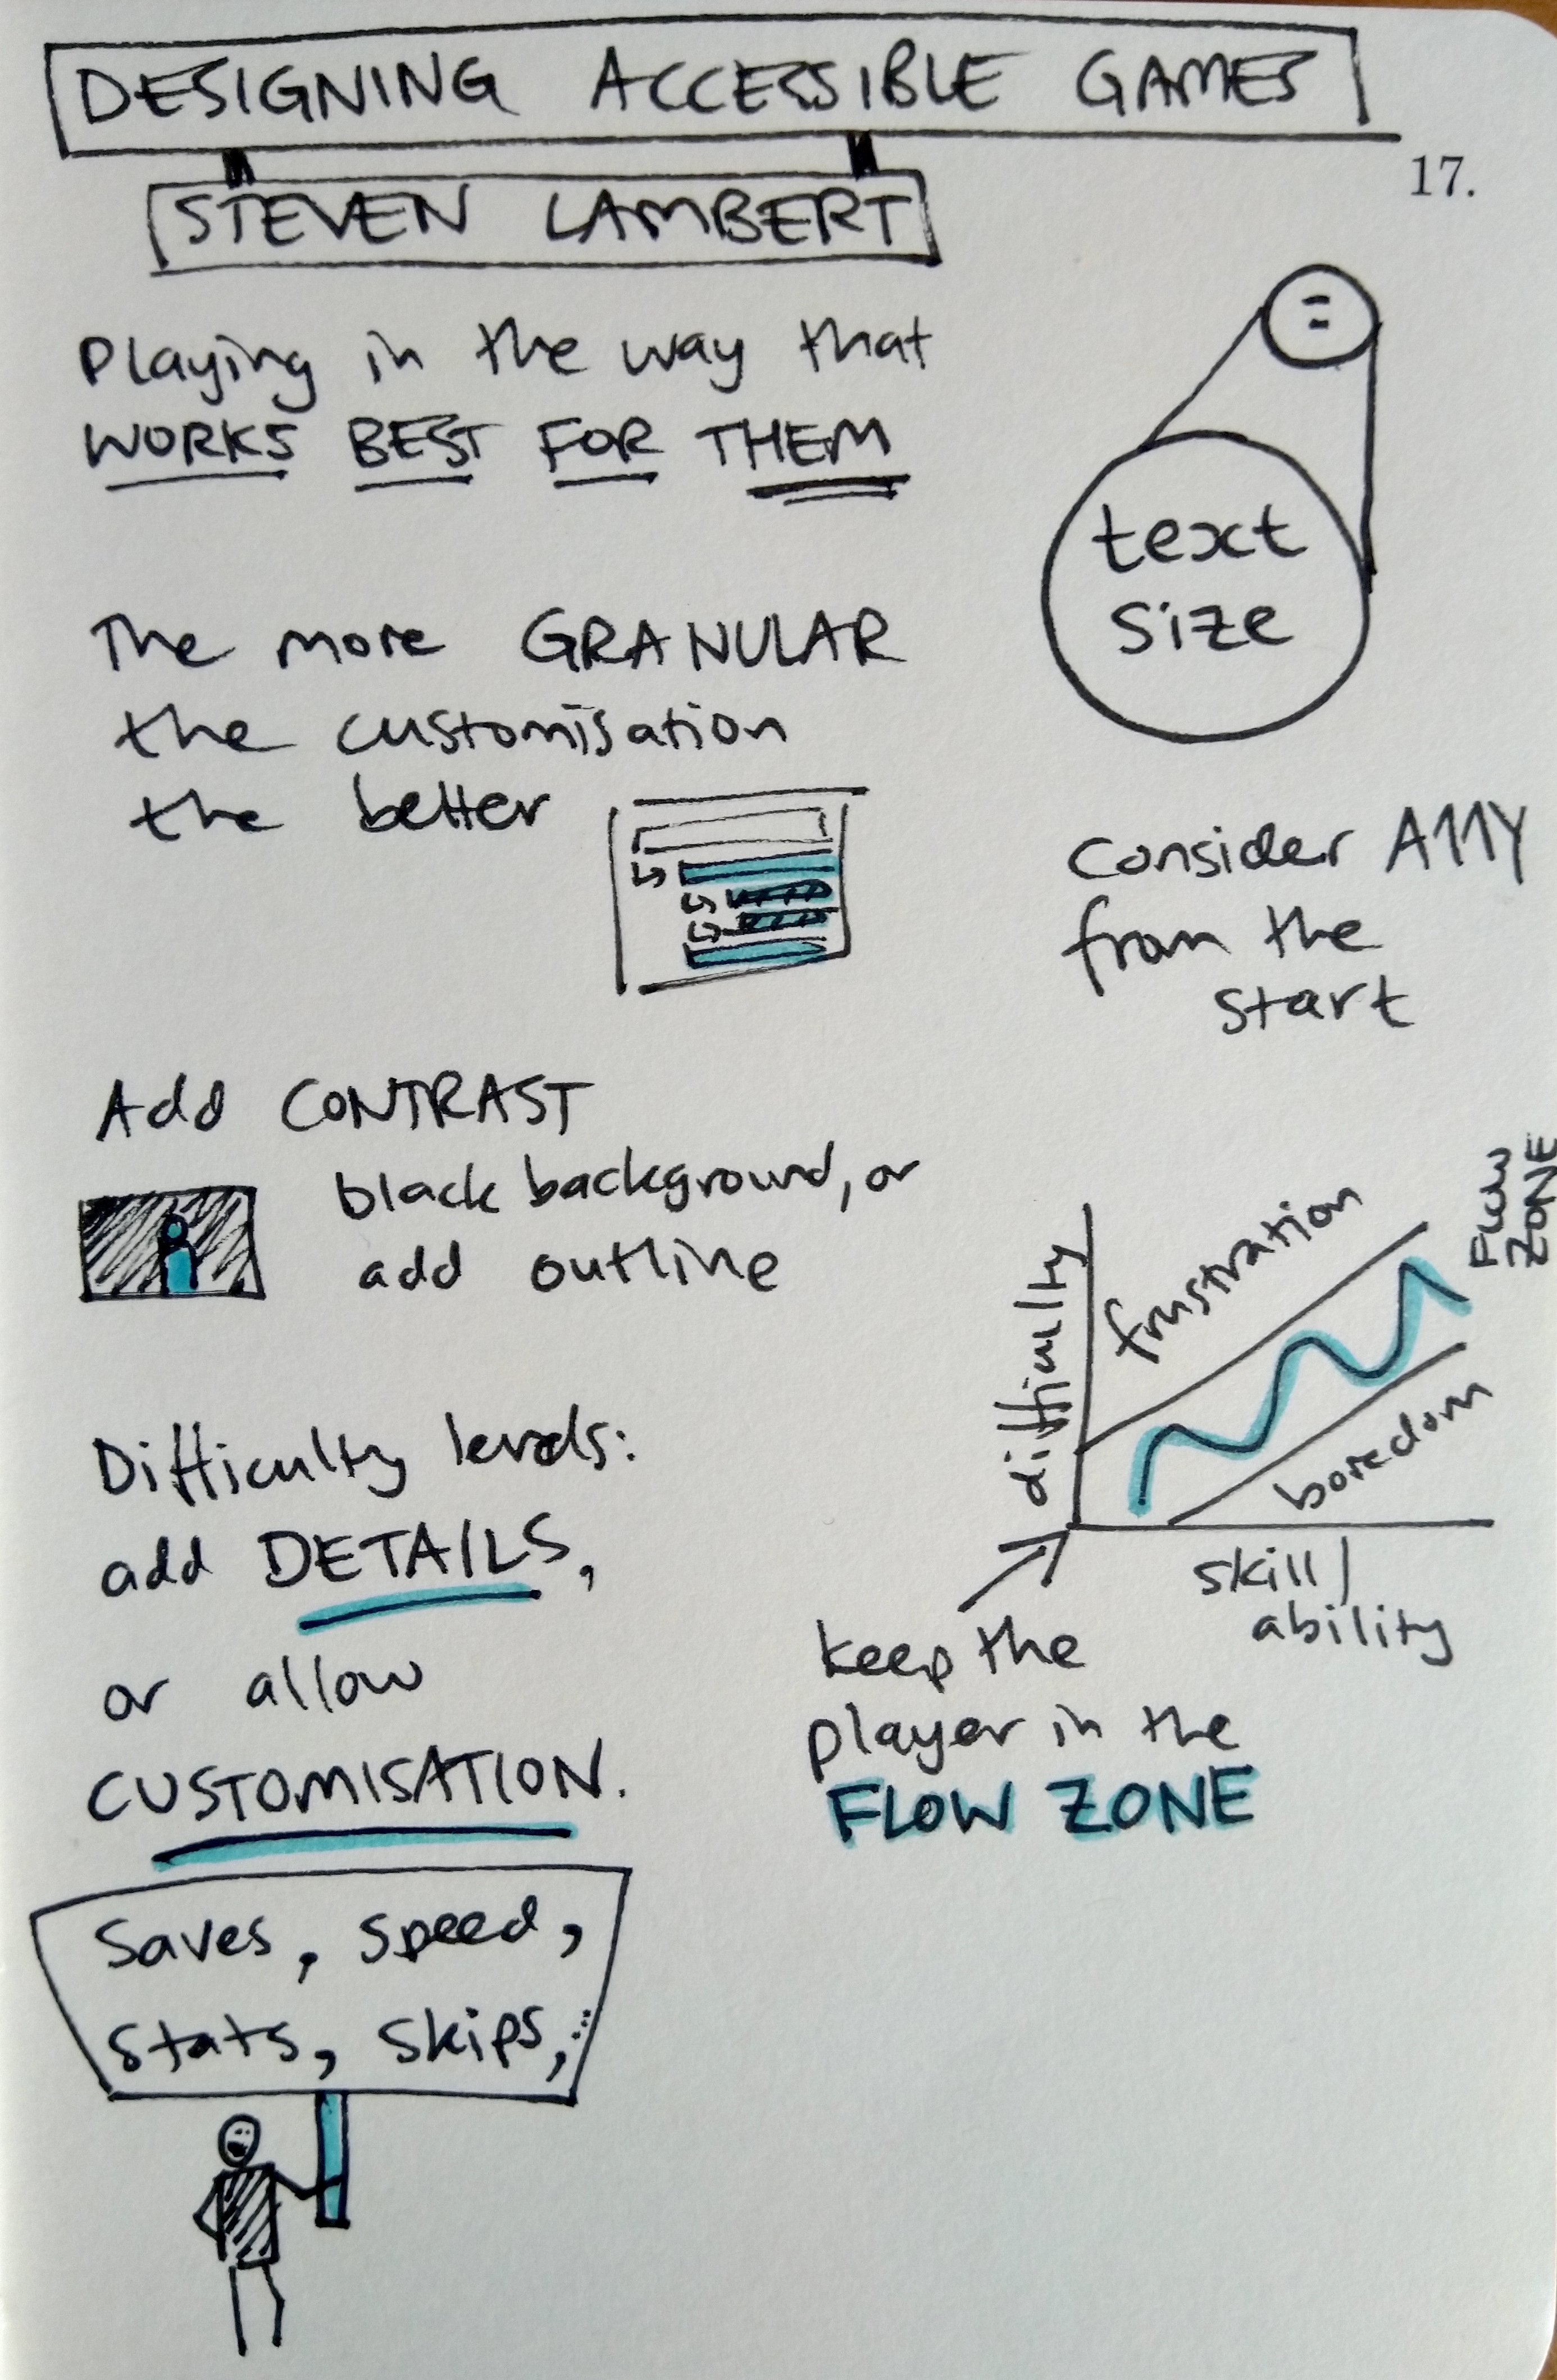 DESIGNING ACCESSIBLE GAMES
17.
STEVEN LAMBERT
Playing in the way that
WORKS BEST FOR THEM
text
size
The more GRANULAR
the customisation
the better
Consider A11Y
from the
start
Add CONTRAST
black background, or
add outline
difficulty
frustration
FLOW
ZONE
boredom
skill/
ability
keep the
player in the
FLOW ZONE
Difficulty levels:
add DETAILS,
or allow
CUSTOMISATION.
Saves, speed,
Stats, skips,...